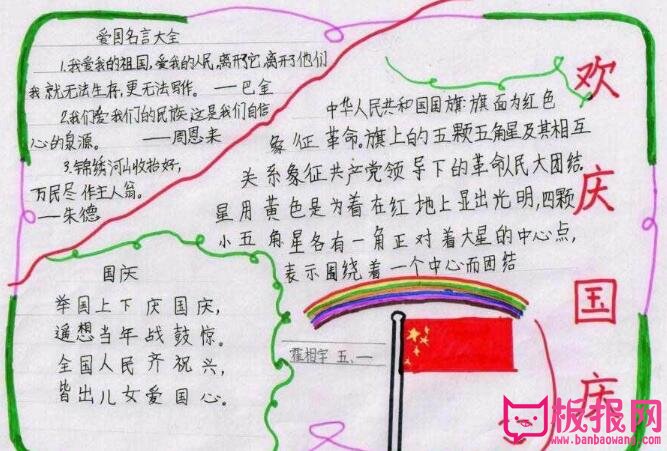 爱国名言大全
1.我爱我的祖国,爱我的人民,离开了它,离开了他们
我就无法生存,更无法写作。——巴金
2.我们爱我们的民族,这是我们自信
心的泉源。——周恩来
3.锦绣河山收拾好,
万民尽作主人翁。
——朱德
国庆
举国上下庆国庆,
遥想当年战鼓惊。
全国人民齐祝兴,
皆出儿女爱国心。
中华人民共和国国旗旗面为红色
象征革命。旗上的五颗五角星及其相互
关系象征共产党领导下的革命人民大团结
星用黄色是为着在红地上显出光明,四颗
小五角星各有一角正对着大星的中心点,
表示围绕着一个中心而团结
霍相宇 五、一
欢庆国庆
板报网
www.banbaowang.com